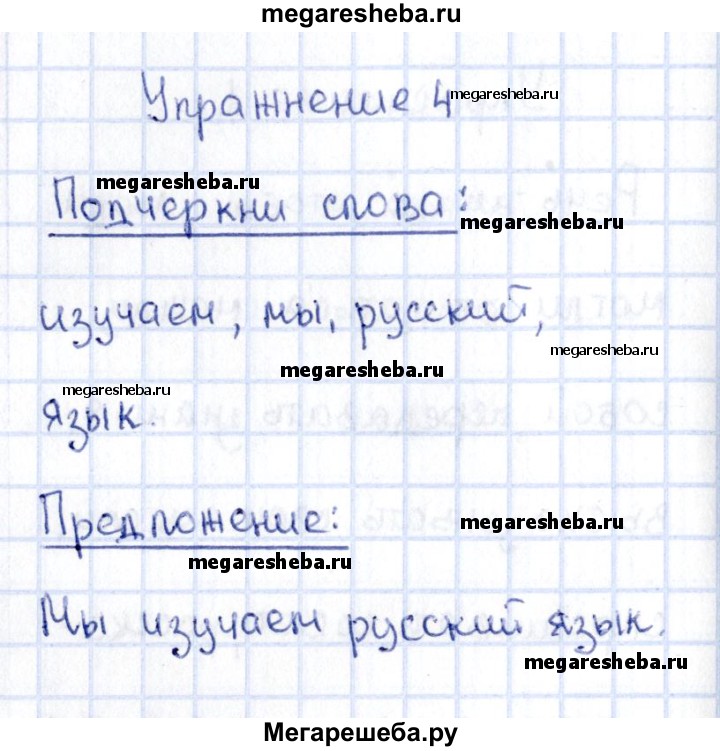 megaresheba.ru
Упражнение 4
megaresheba.ru
megaresheba.ru
Подчеркни слова:
megaresheba.ru
изучаем, мы, русский,
megaresheba.ru
megaresheba.ru
megaresheba.ru
язык.
Предложение:
megaresheba.ru
megaresheba.ru
Мы изучаем русский язык.
megaresheba.ru
Мегарешеба.ру